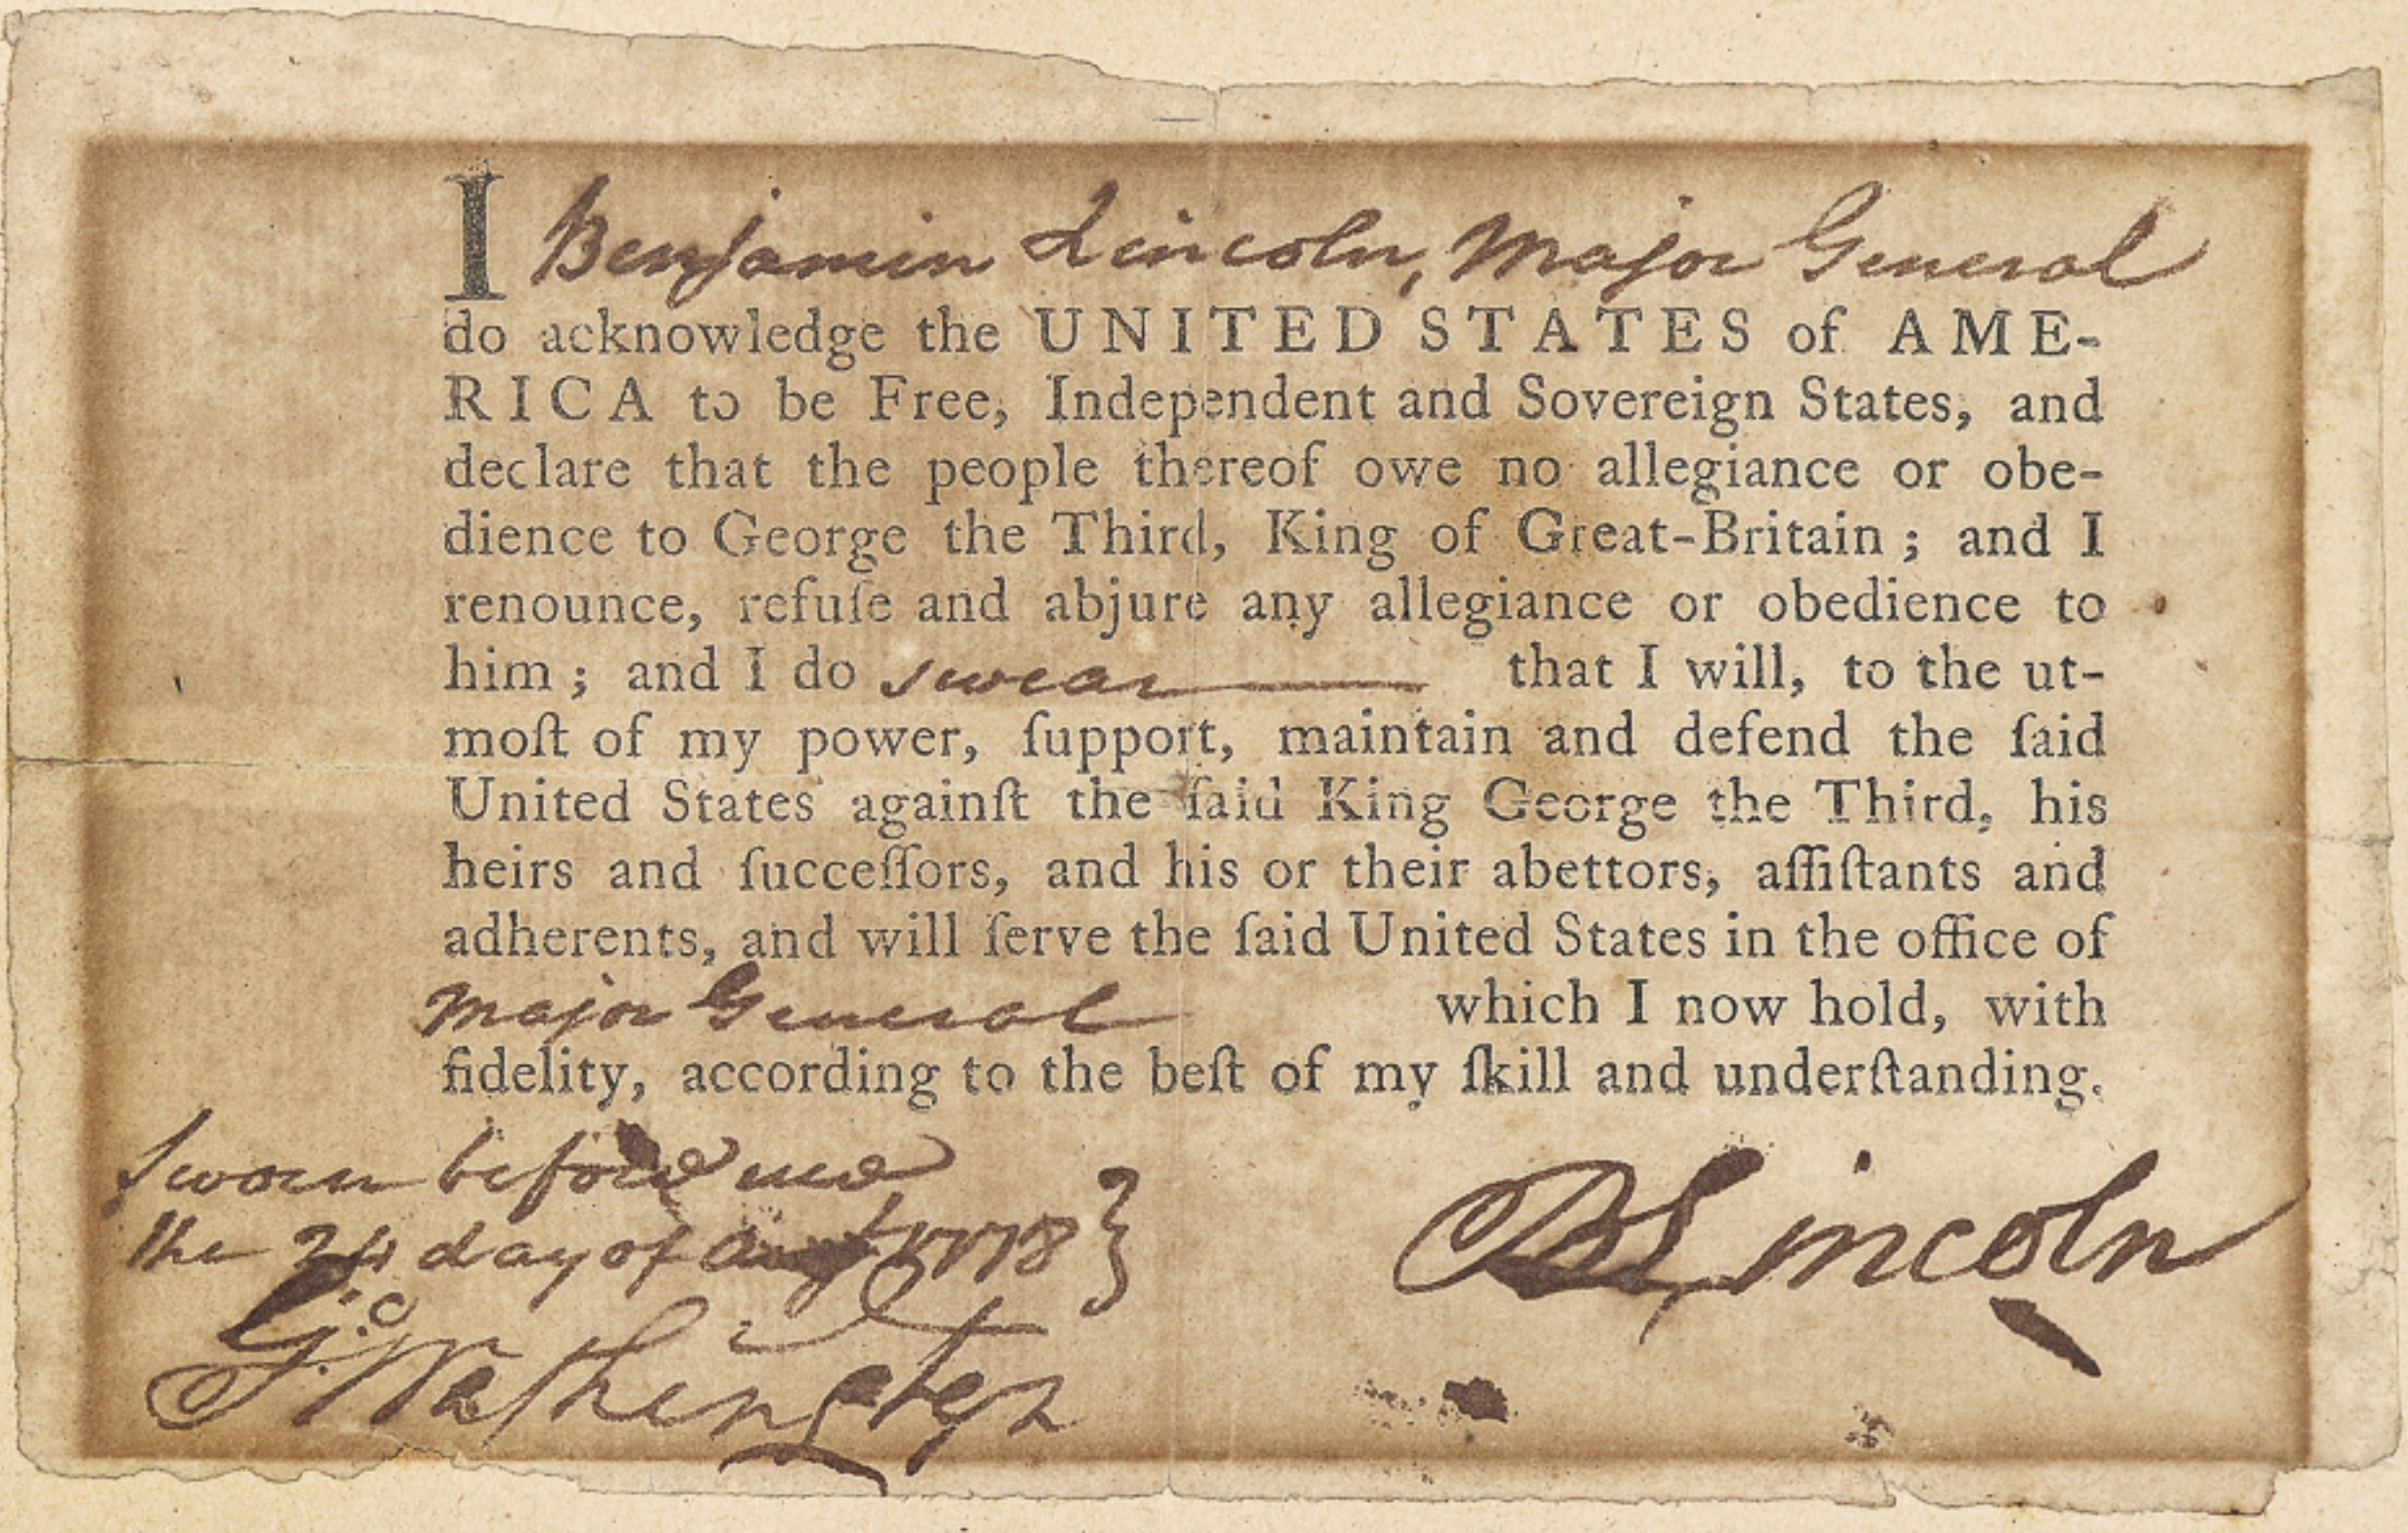 I Benjamin Lincoln, Major General
do acknowledge the UNITED STATES of AME-
RICA to be Free, Independent and Sovereign States, and
declare that the people thereof owe no allegiance or obe-
dience to George the Third, King of Great-Britain ; and I
renounce, refuſe and abjure any allegiance or obedience to
him ; and I do swear that I will, to the ut-
moſt of my power, ſupport, maintain and defend the ſaid
United States againſt the ſaid King George the Third, his
heirs and ſucceſſors, and his or their abettors, aſſiſtants and
adherents, and will ſerve the ſaid United States in the office of
Major General which I now hold, with
fidelity, according to the beſt of my ſkill and underſtanding.
Sworn before me
the 24 day of Augt 1778
B Lincoln
Go Washington